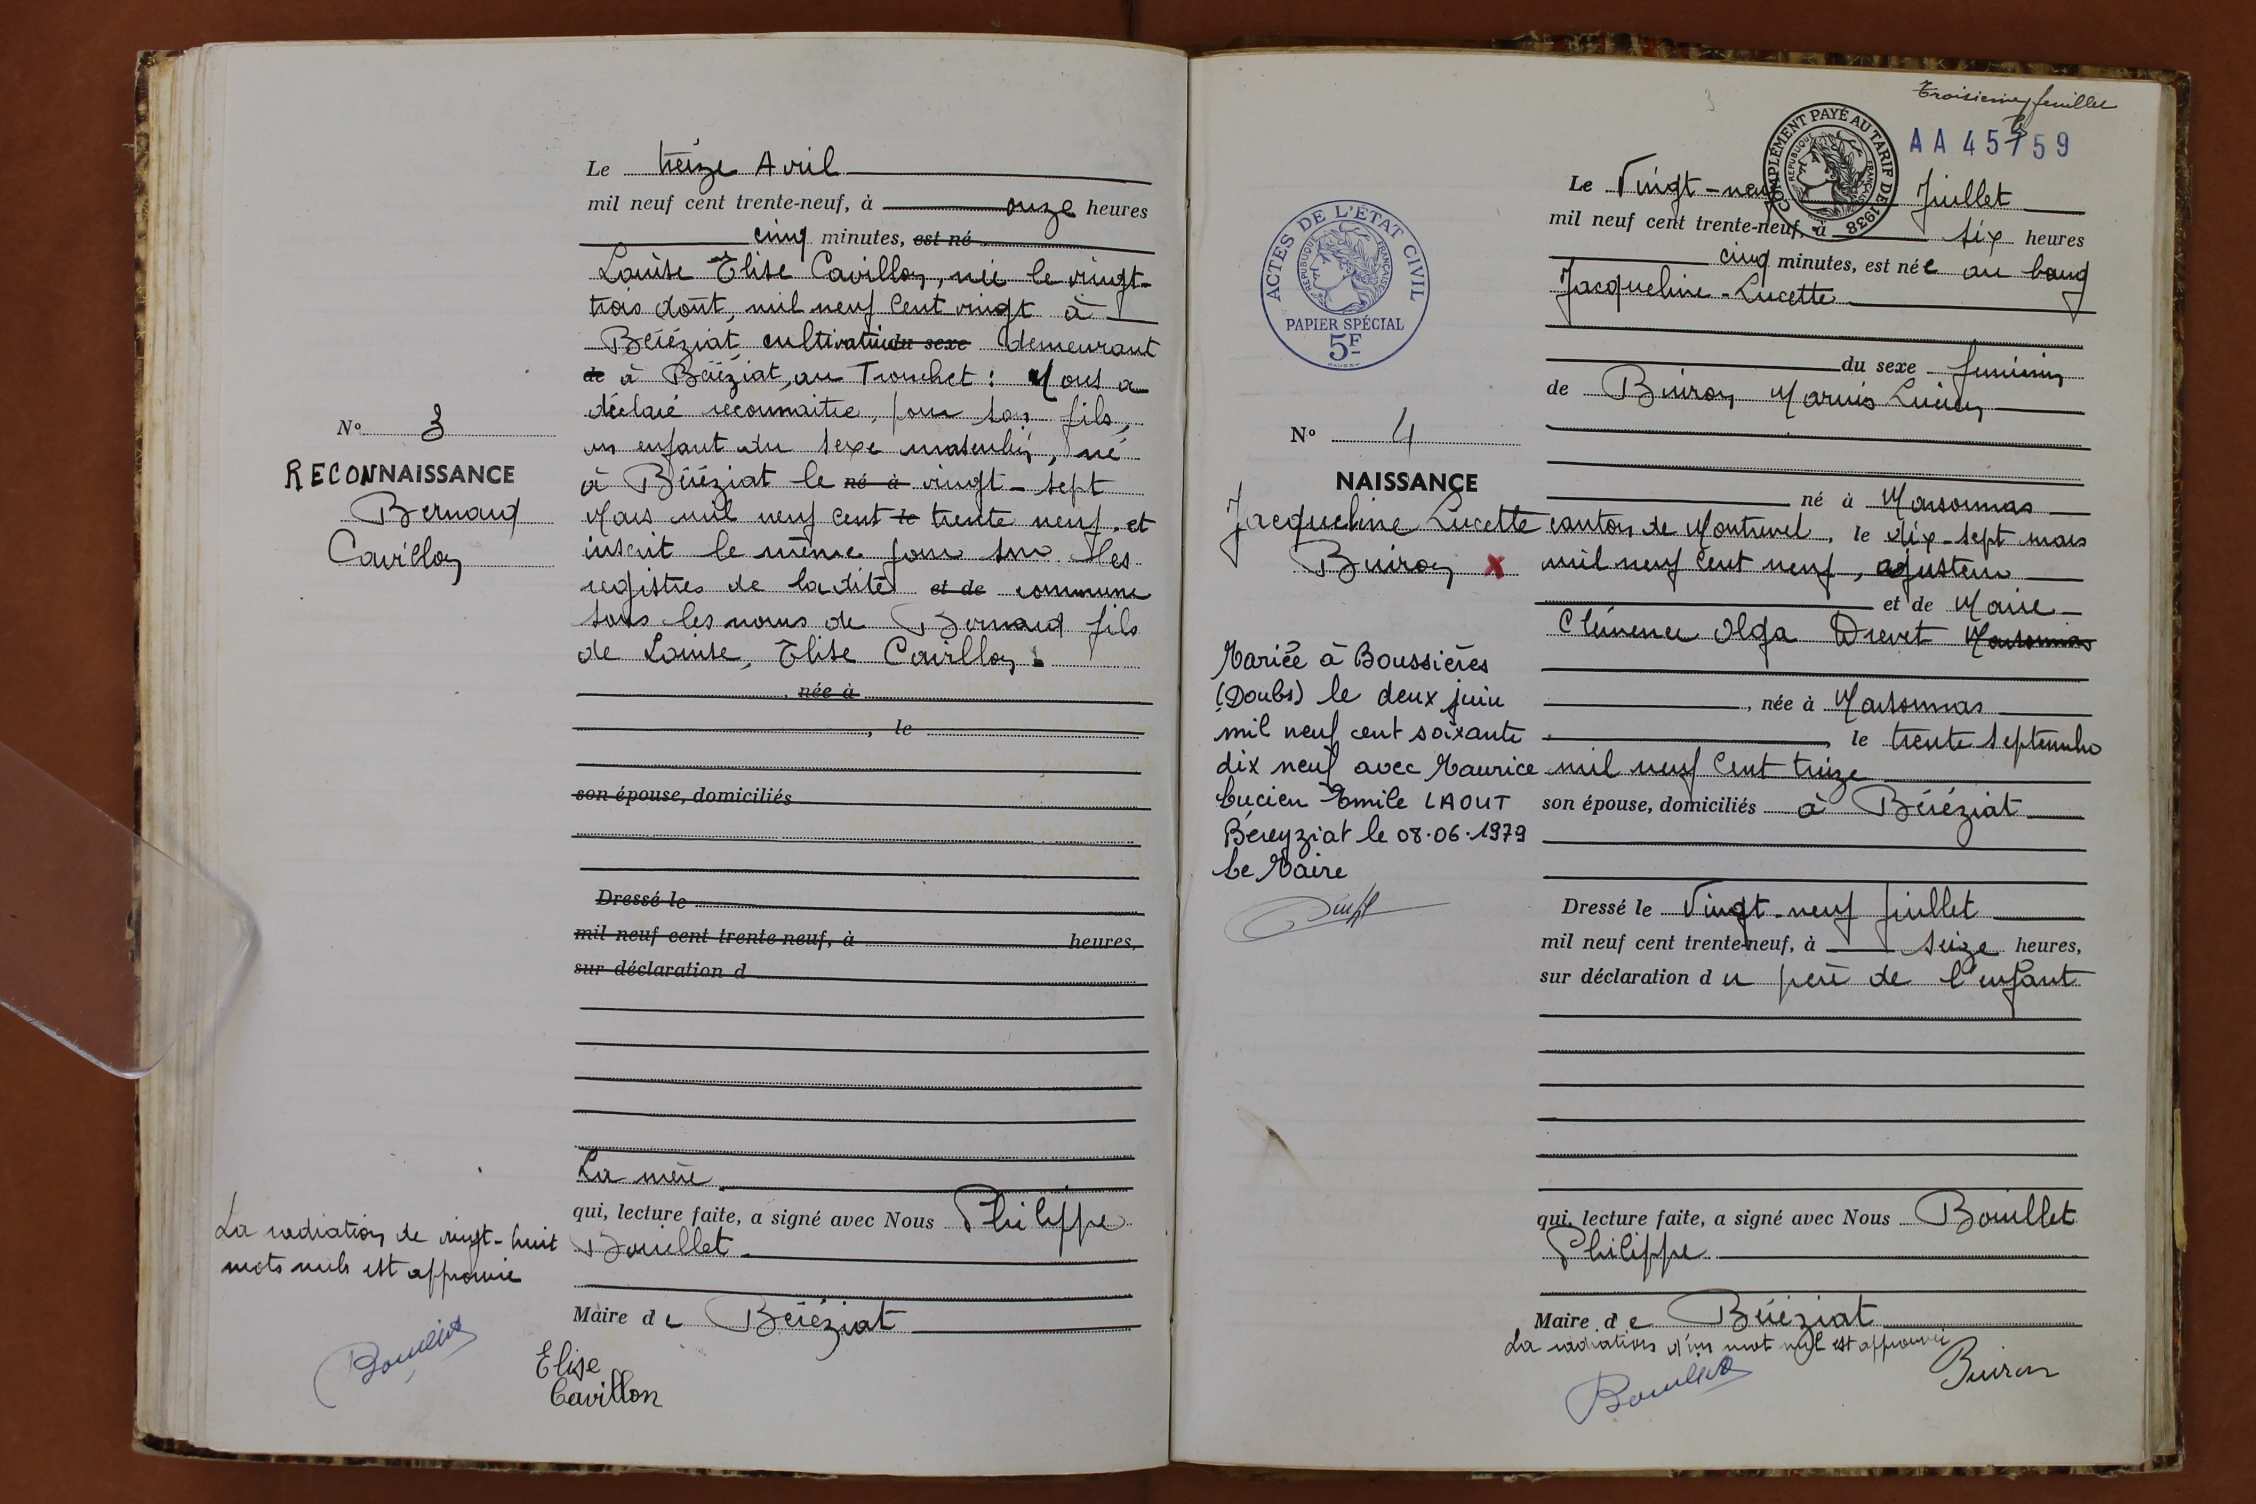 Le treize Avril
mil neuf cent trente-neuf, à onze heures
cinq minutes, est né
Louise Elise Cavillon, née le vingt-
trois août, mil neuf cent vingt à
Béréziat, cultivatrice du sexe demeurant
de à Béréziat, au Tronchet : Nous a
déclaré reconnaitre, pour son fils,
un enfant du sexe masculin, né
à Béréziat le né à vingt-sept
Mars mil neuf cent le trente neuf, et
inscrit le même jour sur les
registres de ladite et de commune
sous les noms de Bernard fils
de Louise, Elise Cavillon.
, née à
, le
son épouse, domiciliés
Dressé le
mil neuf cent trente-neuf, à heures,
sur déclaration d
La mère
qui, lecture faite, a signé avec Nous Philippe
Bouillet
Maire de Béréziat
Elise
Cavillon
No 3
RECONNAISSANCE
Bernard
Cavillon
La radiation de vingt-huit
mots nuls est approuvée
Bouillet
Troisième feuillet
3
AA 45759
COMPLÉMENT PAYÉ AU TARIF DE 1938
RÉPUBLIQUE FRANÇAISE
ACTES DE L'ÉTAT CIVIL
RÉPUBLIQUE FRANÇAISE
PAPIER SPÉCIAL
5F
Le Vingt-neuf Juillet
mil neuf cent trente-neuf, à six heures
cinq minutes, est née au bourg
Jacqueline-Lucette
du sexe féminin
de Buiron Marius Lucien
né à Marsonnas
canton de Montrevel, le dix-sept mars
mil neuf cent neuf, ajusteur
et de Marie
Clémence Olga Drevet Marsonnas
, née à Marsonnas
, le trente septembre
mil neuf cent treize
son épouse, domiciliés à Béréziat
Dressé le Vingt-neuf Juillet
mil neuf cent trente-neuf, à seize heures,
sur déclaration du père de l'enfant
qui, lecture faite, a signé avec Nous Bouillet
Philippe
Maire de Béréziat
La radiation d'un mot nul est approuvée
Bouillet
Buiron
No 4
NAISSANCE
Jacqueline Lucette
Buiron X
Mariée à Boussières
(Doubs) le deux juin
mil neuf cent soixante
dix neuf avec Maurice
Lucien Emile LAOUT
Béreyziat le 08.06.1979
Le Maire